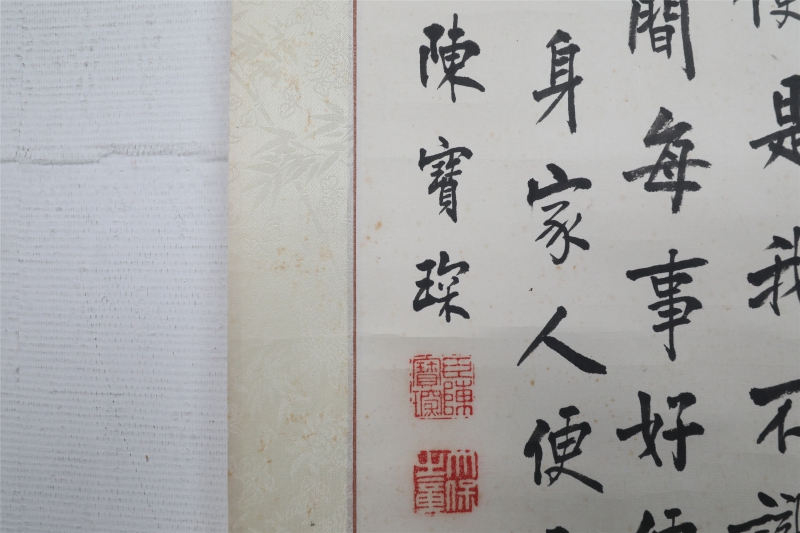 是我不
間每事好便
身家人便
陳寶琛
臣陳寶琛